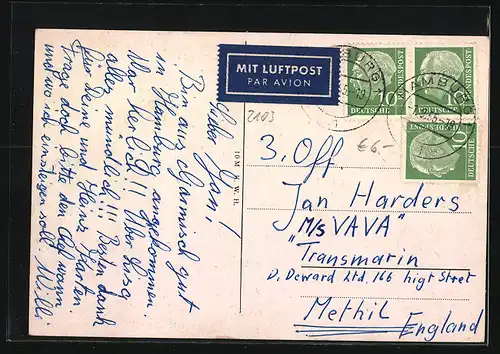 Lieber Jan!
Bin aus Garmisch gut
in Hamburg angekommen.
War herlich!! Über
alles mündlich!!! Besten dank
für Deine und Heinz Karten.
Frage doch bitte den Ch wann
und wo ich einsteigen soll. Willi
MIT LUFTPOST
PAR AVION
2103
10 M S. W. H.
€6-
3. Off.
Jan Harders
M/S VAVA"
"Transmarin
D. Deward Ltd. 166 higt Street
Methil
England
HAMBURG
10
DEUTSCHE
BUNDESPOST
DEUTSCHE
BUNDESPOST
10
DEUTSCHE
BUNDESPOST